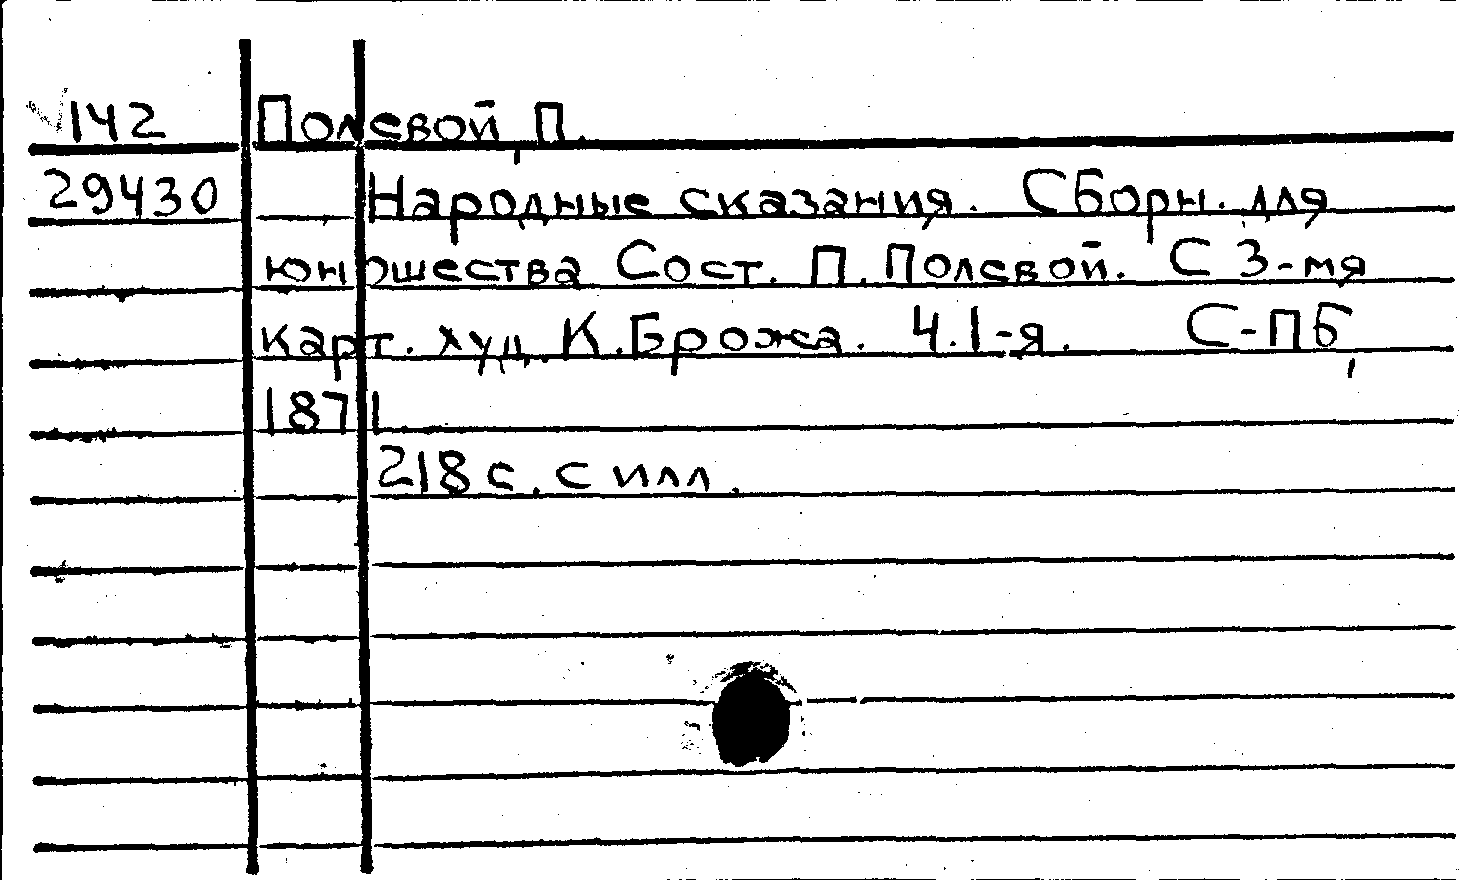 √142 Полевой, П.
29430 Народные сказания. Сборн. для
юношества Сост. П. Полевой. С 3-мя
карт. худ. К. Брожа. Ч. I-я. С-ПБ,
1871
218 с. с илл.